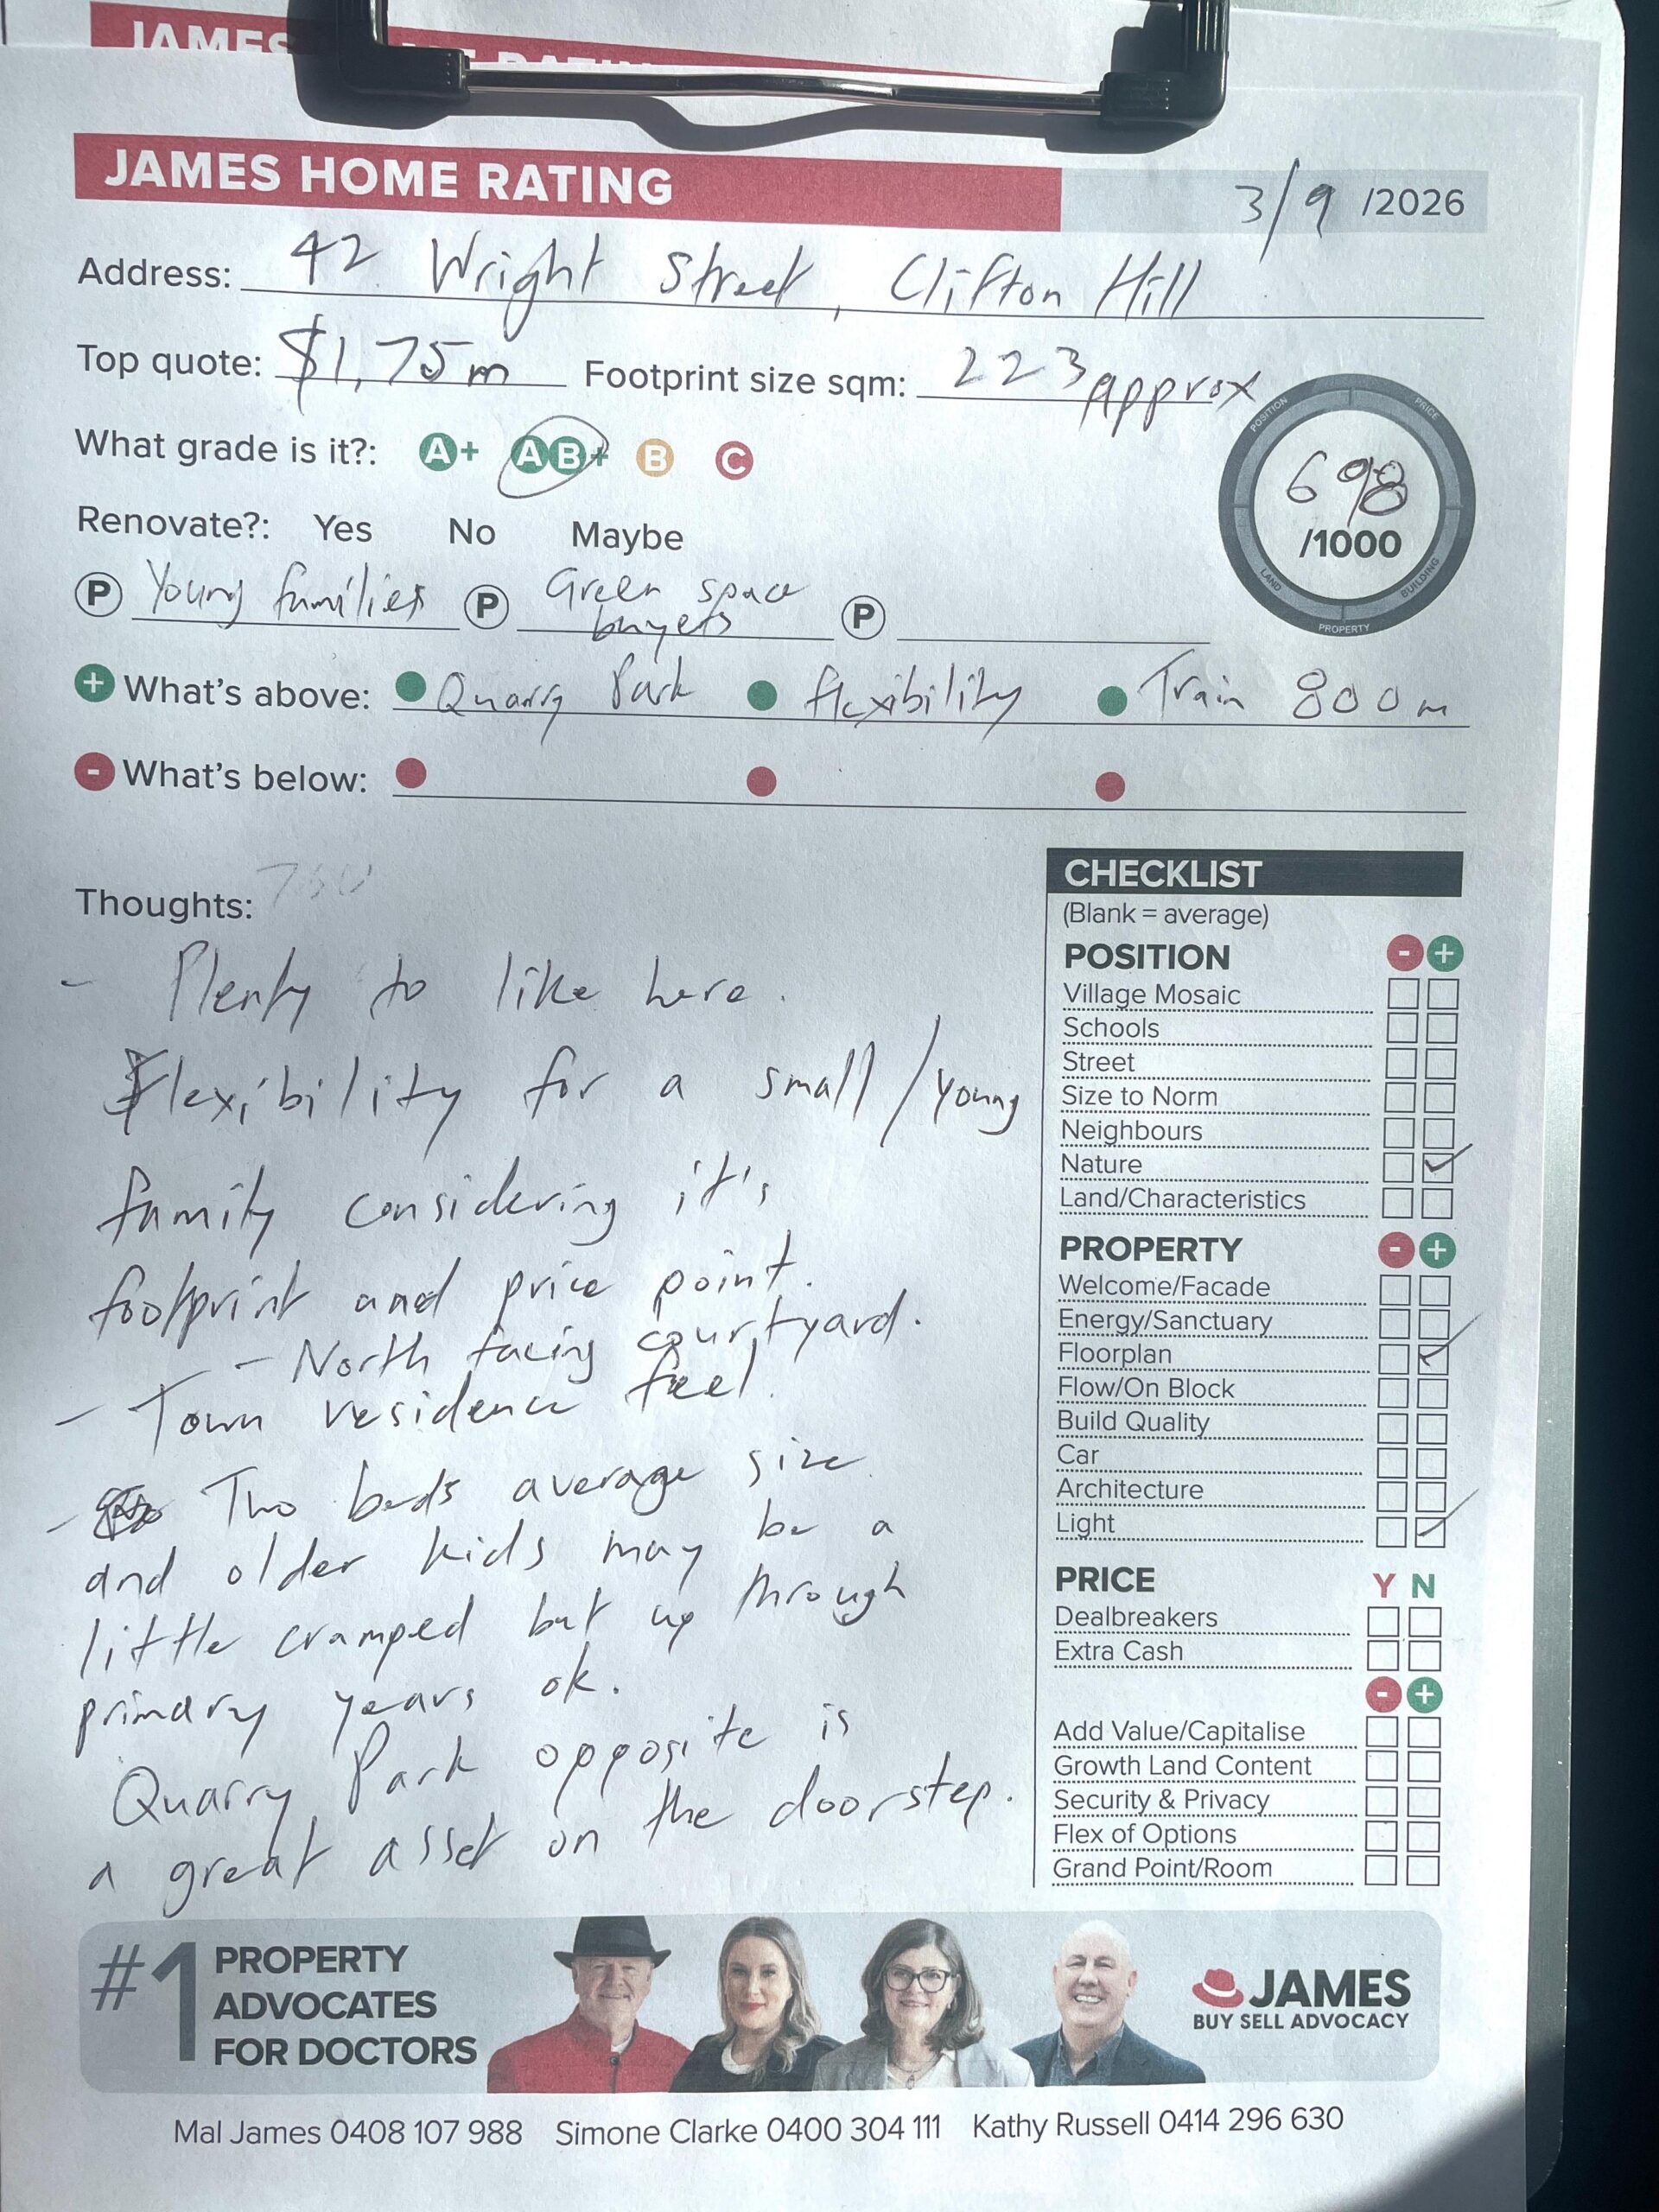 JAMES
JAMES HOME RATING
3/9 /2026
Address: 42 Wright Street, Clifton Hill
Top quote: $1,75m Footprint size sqm: 223 approx
What grade is it?: A+ AB+ B C
POSITION PRICE LAND BUILDING PROPERTY
698
/1000
Renovate?: Yes No Maybe
P Young families P Green space buyers P
+ What's above: Quarry Park flexibility Train 800m
- What's below:
Thoughts: 760
- Plenty to like here.
Flexibility for a small/young
family considering it's
footprint and price point.
- North facing courtyard.
- Town residence feel.
- Two beds average size
and older kids may be a
little cramped but up through
primary years ok.
Quarry Park opposite is
a great asset on the doorstep.
CHECKLIST
(Blank = average)
POSITION - +
Village Mosaic
Schools
Street
Size to Norm
Neighbours
Nature
Land/Characteristics
PROPERTY - +
Welcome/Facade
Energy/Sanctuary
Floorplan
Flow/On Block
Build Quality
Car
Architecture
Light
PRICE Y N
Dealbreakers
Extra Cash
- +
Add Value/Capitalise
Growth Land Content
Security & Privacy
Flex of Options
Grand Point/Room
#1 PROPERTY
ADVOCATES
FOR DOCTORS
JAMES
BUY SELL ADVOCACY
Mal James 0408 107 988 Simone Clarke 0400 304 111 Kathy Russell 0414 296 630